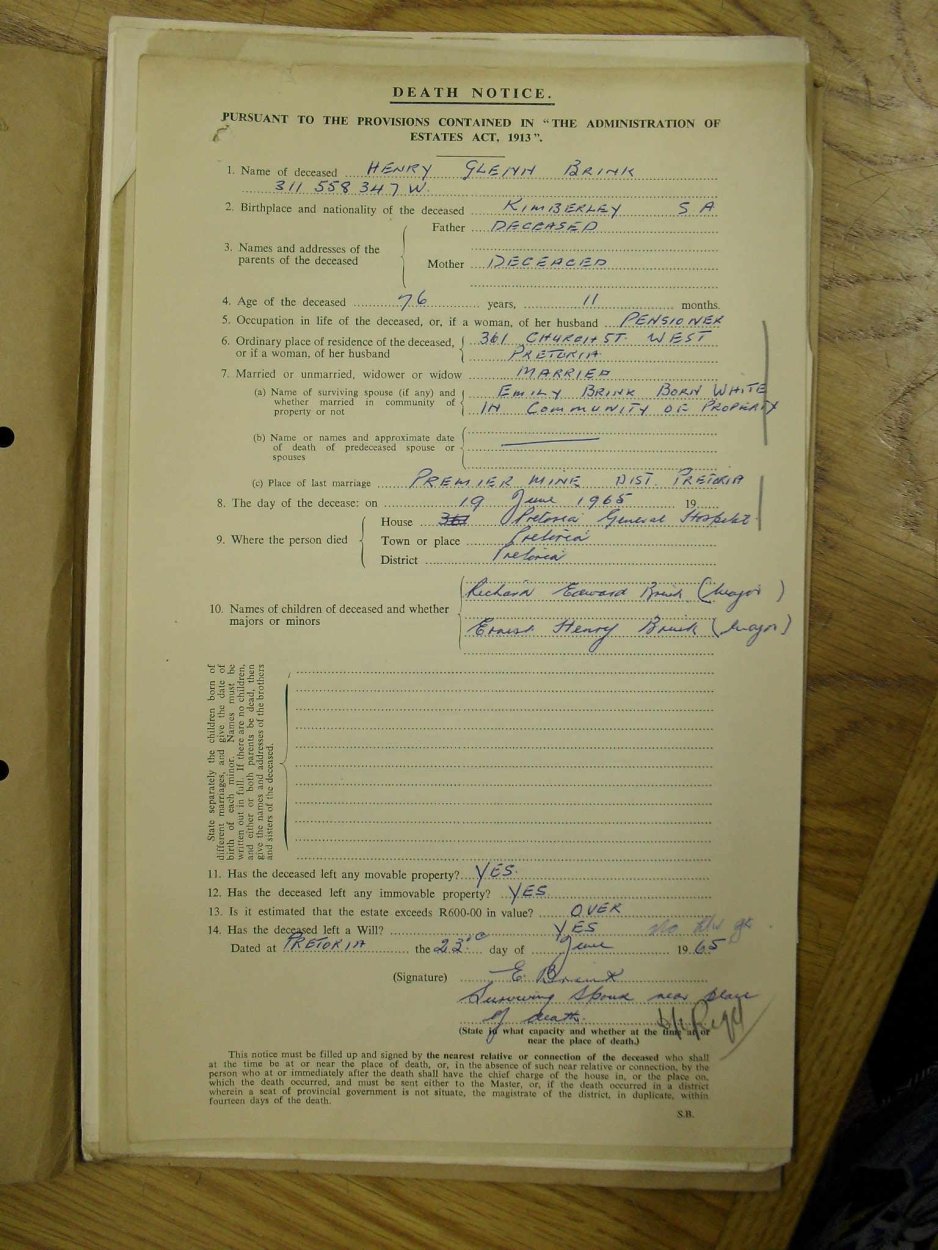 DEATH NOTICE.
PURSUANT TO THE PROVISIONS CONTAINED IN "THE ADMINISTRATION OF
ESTATES ACT, 1913".
1. Name of deceased HENRY GLENN BRINK
311 558 347 W.
2. Birthplace and nationality of the deceased KIMBERLEY S A
3. Names and addresses of the parents of the deceased
Father DECEASED
Mother DECEACED
4. Age of the deceased 76 years, 11 months.
5. Occupation in life of the deceased, or, if a woman, of her husband PENSIONER
6. Ordinary place of residence of the deceased, 361 CHURCH ST. WEST
or if a woman, of her husband PRETORIA
7. Married or unmarried, widower or widow MARRIED
(a) Name of surviving spouse (if any) and whether married in community of property or not
EMILY BRINK BORN WHITE
IN COMMUNITY OF PROPERTY
(b) Name or names and approximate date
of death of predeceased spouse or
spouses
(c) Place of last marriage PREMIER MINE DIST PRETORIA
8. The day of the decease: on 19 June 1965 19
9. Where the person died
House 361 Pretoria General Hospital
Town or place Pretoria
District Pretoria
10. Names of children of deceased and whether
majors or minors
Richard Edward Brink (Major)
Ernest Henry Brink (Major)
State separately the children born of
different marriages, and give the date of
birth of each minor. Names must be
written out in full. If there are no children,
and either or both parents be dead, then
give the names and addresses of the brothers
and sisters of the deceased.
11. Has the deceased left any movable property? YES.
12. Has the deceased left any immovable property? YES
13. Is it estimated that the estate exceeds R600-00 in value? OVER
14. Has the deceased left a Will? YES
Dated at PRETORIA the 23rd day of June 1965
(Signature) E. Brink
Surviving Spouse near place
of death.
(State in what capacity and whether at the time at or
near the place of death.)
This notice must be filled up and signed by the nearest relative or connection of the deceased who shall
at the time be at or near the place of death, or, in the absence of such near relative or connection, by the
person who at or immediately after the death shall have the chief charge of the house in, or the place on,
which the death occurred, and must be sent either to the Master, or, if the death occurred in a district
wherein a seat of provincial government is not situate, the magistrate of the district, in duplicate, within
fourteen days of the death.
S.B.